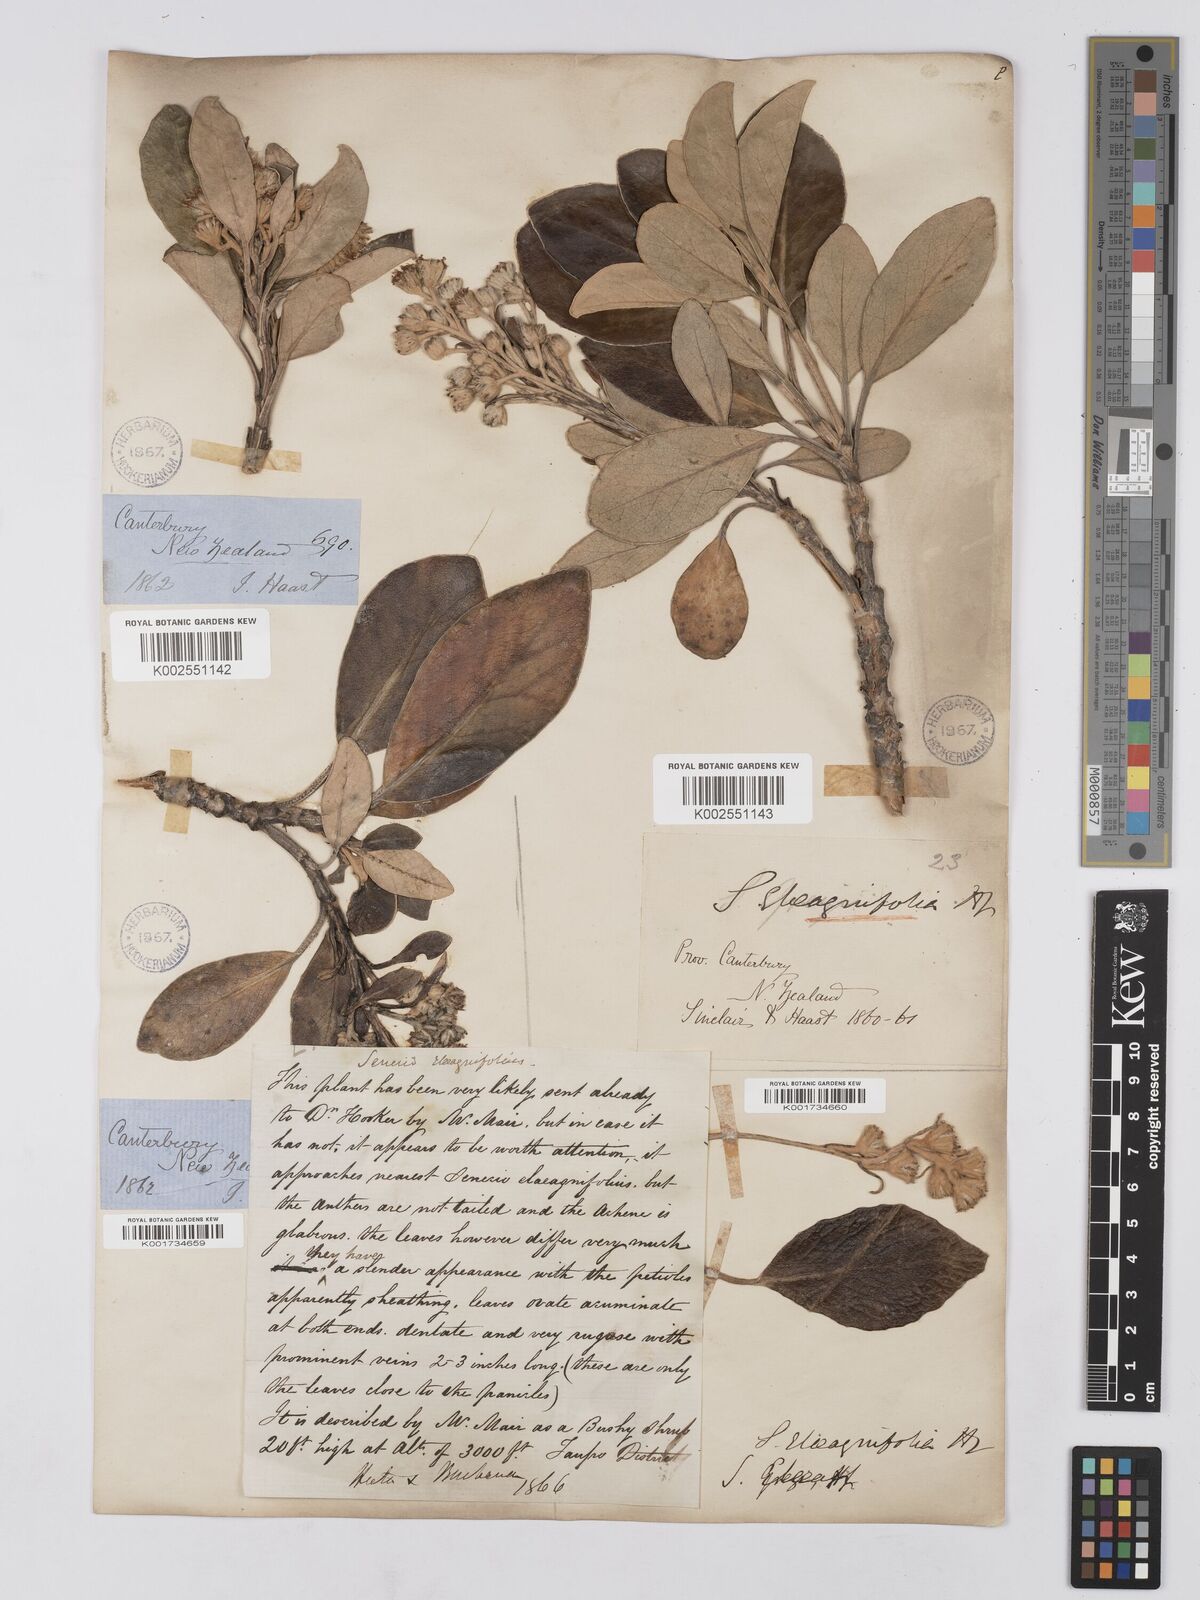 HERBARIUM HOOKERIANUM
1867.
Canterbury
New Zealand 690.
1862 J. Haast
ROYAL BOTANIC GARDENS KEW
K002551142
HERBARIUM HOOKERIANUM
1867.
ROYAL BOTANIC GARDENS KEW
K002551143
23
S. elaeagnifolia Hf
Prov. Canterbury
N. Zealand
Sinclair & Haast 1860-61
HERBARIUM HOOKERIANUM
1867.
Canterbury
New Zea
1862 J.
ROYAL BOTANIC GARDENS KEW
K001734659
Senecio elaeagnifolius.
This plant has been very likely sent already
to Dr Hooker by Mr. Mair. but in case it
has not, it appears to be worth attention, it
approaches nearest Senecio elaeagnifolius. but
the anthers are not tailed and the Achene is
glabrous. the leaves however differ very much
they have
a slender appearance with the petioles
apparently sheathing. leaves ovate acuminate
at both ends. dentate and very rugose with
prominent veins 2-3 inches long. (these are only
the leaves close to the panicles)
It is described by Mr. Mair as a Bushy shrub
20 ft. high at Alt. of 3000 ft. Taupo District
1866
ROYAL BOTANIC GARDENS KEW
K001734660
S. elaeagnifolia Hf
S.
inches
centimeters
Density
Don Williams
M000857
Royal Botanic Gardens
Kew
0 1 2 3 4 5 6 7 8 9 10
cm
copyright reserved